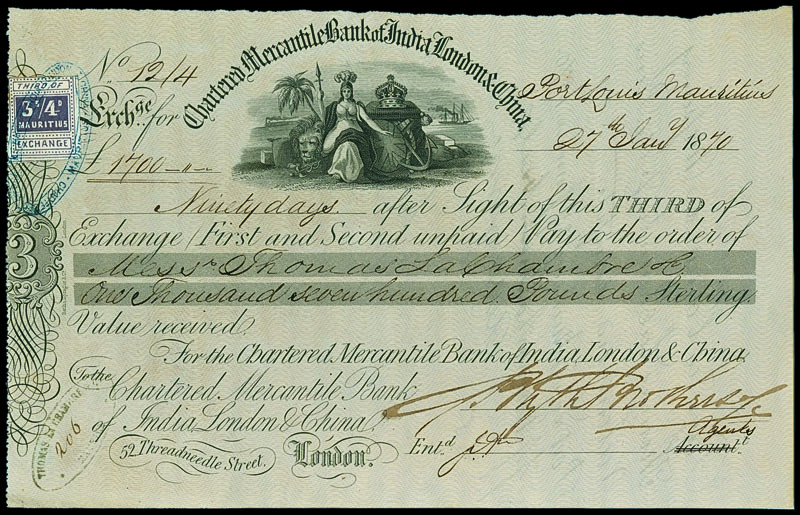 No 12/4
Chartered Mercantile Bank of India, London & China,
Port Louis Mauritius
THIRD OF
3s/4d
MAURITIUS
EXCHANGE
Exchge for
27th Jany 1870
£ 1700 -"-
Ninety days after Sight of this THIRD of
3
Exchange (First and Second unpaid) Pay to the order of
Messrs Thomas La Chambre & Co
One Thousand seven hundred Pounds Sterling.
Value received.
For the Chartered Mercantile Bank of India, London & China
To the Chartered Mercantile Bank
of India, London & China.
Blyth Brothers & Co
Agents
52 Threadneedle Street. London.
Entd
Accountt
THOMAS
206